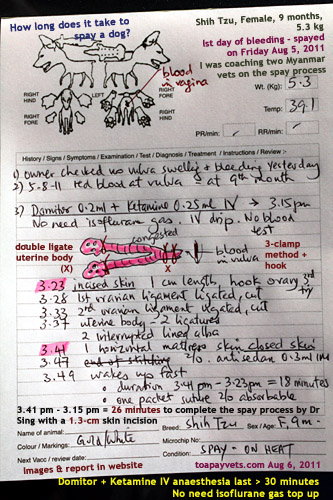 How long does it take to
spay a dog?
Shih Tzu, Female, 9 months,
5.3 kg
1st day of bleeding - spayed
on Friday Aug 5, 2011
I was coaching two Myanmar
vets on the spay process
blood
in vagina
RIGHT
HIND
LEFT
RIGHT
FORE
Wt. (Kg): 5.3
Temp: 39.1
RIGHT
HIND
RIGHT
FORE
PR/min:
RR/min:
History / Signs / Symptoms / Examination / Test / Diagnosis / Treatment / Instructions / Review :-
1) owner checked no vulva swelling + bleeding yesterday
2) 5-8-11 red blood at vulva at 9th month
3) Domitor 0.2ml + Ketamine 0.25ml IV → 3.15pm
No need isoflurane gas. IV drip. No blood
test
congested
double ligate
uterine body
(X)
X
blood
in vulva
3-clamp
method +
hook
3.23 incised skin 1 cm length, hook ovary 3rd
try
3.28 1st ovarian ligament ligated, cut
3.33 2nd ovarian ligament ligated, cut
3.37 uterine body - 2 ligatures
2 interrupted linea alba
3.41 1 horizontal mattress skin closed skin
3.47 end of stitching 2/0. antisedan 0.3ml IM
3.49 wakes up fast
• duration 3.41pm - 3.23pm = 18 minutes
• one packet suture 2/0 absorbable
3.41 pm - 3.15 pm = 26 minutes to complete the spay process by Dr
Sing with a 1.3-cm skin incision
Name of animal:
Breed: Shih Tzu
Sex / Age: F, 9m.
Colour / Markings: Gold/White
Microchip No:
Next Vacc / review date:
Condition: SPAY - ON HEAT
Images & report in website
toapayvets.com Aug 6, 2011
Domitor + Ketamine IV anaesthesia last > 30 minutes
No need isoflurane gas top up